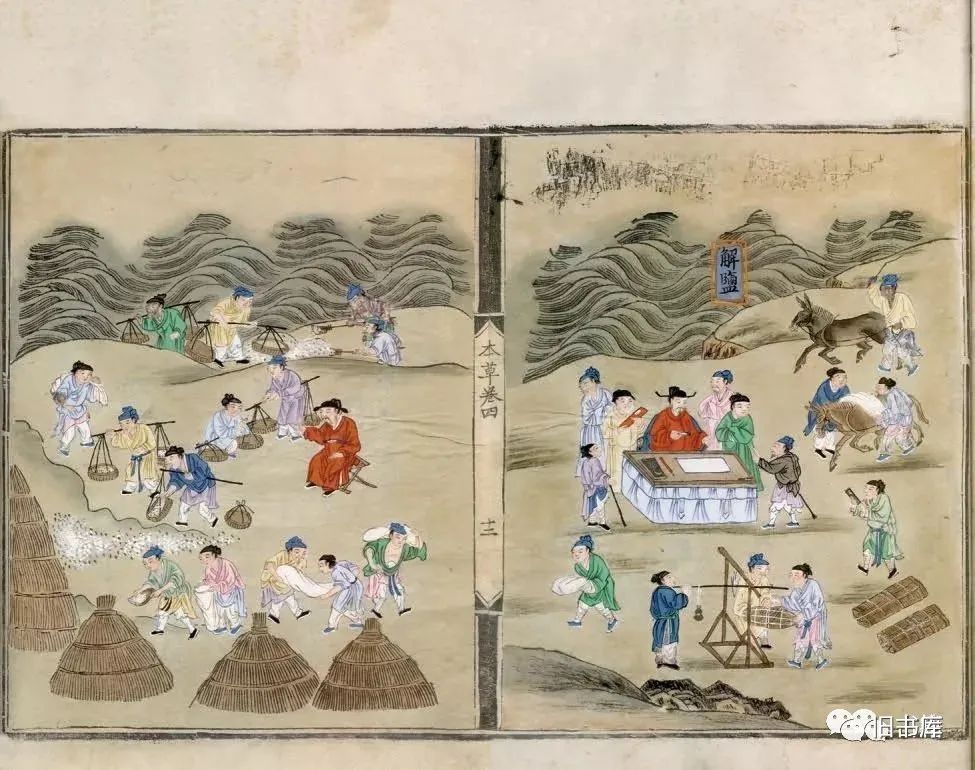 解鹽
本草卷四
十二
旧书库